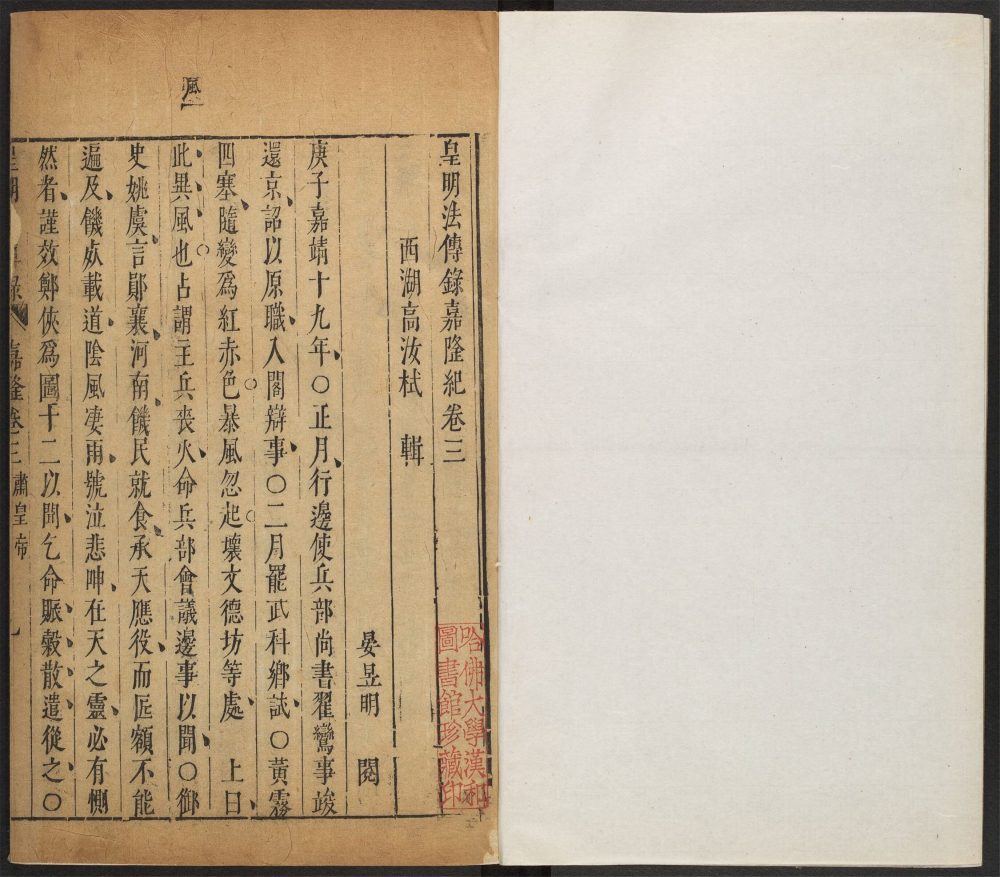 皇明法傳錄嘉隆紀卷三
西湖高汝栻 輯
晏昱明 閱
庚子嘉靖十九年○正月行邊使兵部尚書翟鸞事竣
還京詔以原職入閣辦事○二月罷武科鄉試○黃霧
四塞隨變爲紅赤色暴風忽起壞文德坊等處 上曰
此異風也占謂主兵喪火命兵部會議邊事以聞○御
史姚虞言鄖襄河南饑民就食承天應役而匠額不能
遍及饑殍載道陰風凄雨號泣悲呻在天之靈必有惻
然者謹效鄭俠爲圖十二以聞乞命賑穀散遣從之○
嘉隆卷三 肅皇帝
風
哈佛大學漢和
圖書館珍藏印